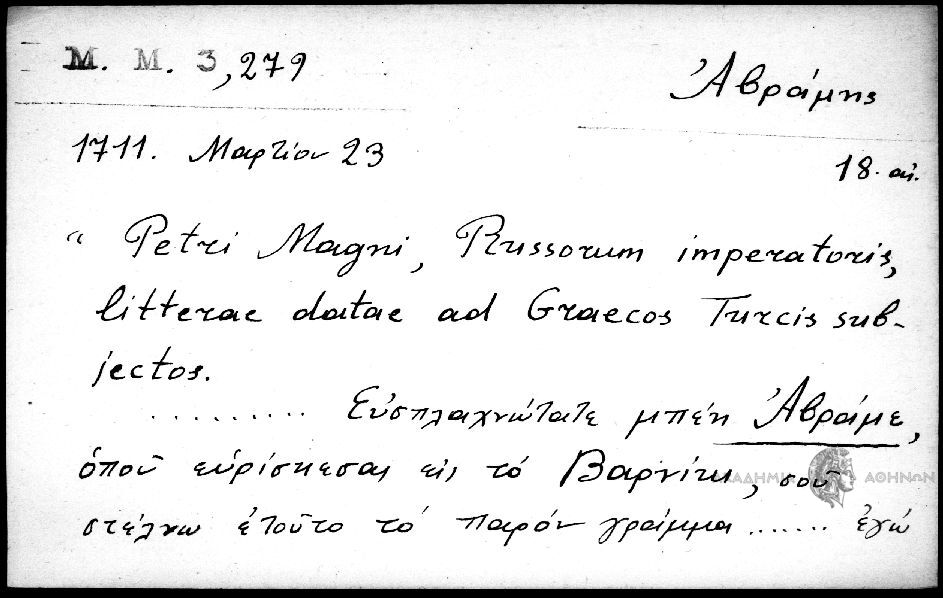 M. M. 3,279
Ἀβράμης
1711. Μαρτίου 23
18. αἰ.
“ Petri Magni, Russorum imperatoris,
litterae datae ad Graecos Turcis sub-
jectos.
......... Εὐσπλαχνώτατε μπέη Ἀβράμε,
ὁποῦ εὑρίσκεσαι εἰς τό Βαρνίτι, σοῦ
στέλνω ἐτοῦτο τό παρόν γράμμα ...... ἐγώ
ΑΚΑΔΗΜΙΑ ΑΘΗΝΩΝ